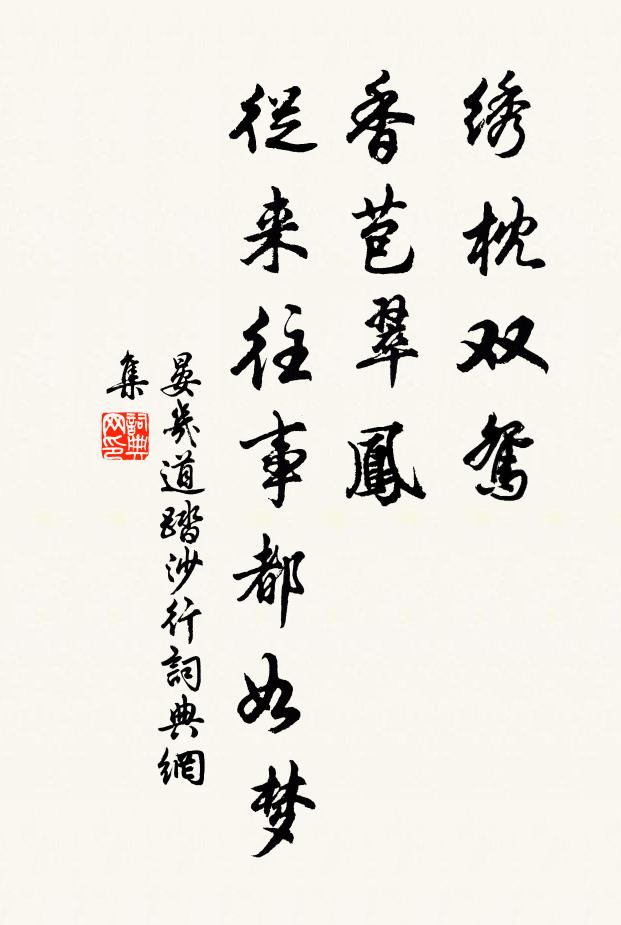 绣枕双鸳
香苞翠鳳
從来往事都如梦
晏幾道踏沙行詞典網
集
詞典网印